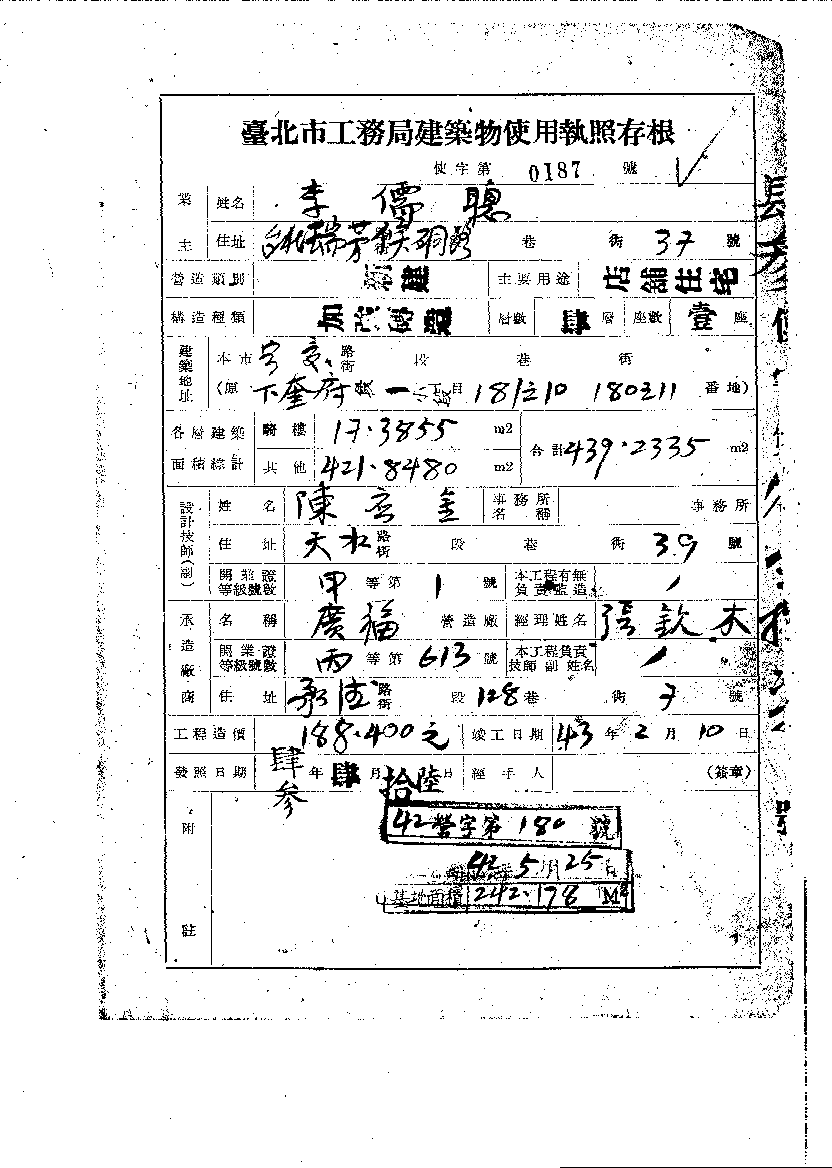 臺北市工務局建築物使用執照存根
使字第 0187 號
業主 姓名 李儒聰
住址 台北瑞芳鎮 路 巷 街 37 號
營造類別 新建 主要用途 店舖住宅
構造種類 加強磚造 層數 肆 層 座數 壹 座
建築地址 本市 路街 段 巷 街
(原 下奎府町一丁目 181之10 180之11 番地)
各層建築面積綜計 騎樓 17.3855 m2 合計 439.2335 m2
其他 421.8480 m2
設計技師(副) 姓名 陳 金 事務所名稱 事務所
住址 天水 路街 段 巷 街 39 號
開業證等級號數 甲 等第 1 號 本工程有無負責監造
承造廠商 名稱 廣福 營造廠 經理姓名 張欽木
開業證等級號數 丙 等第 613 號 本工程負責技師副姓名
住址 承德 路街 段 128 巷 街 7 號
工程造價 188.400元 竣工日期 43 年 2 月 10 日
發照日期 肆參 年 肆 月 拾陸 日 經手人 (簽章)
附註
42營字第 180 號
42 5月25日
基地面積 242.178 M2